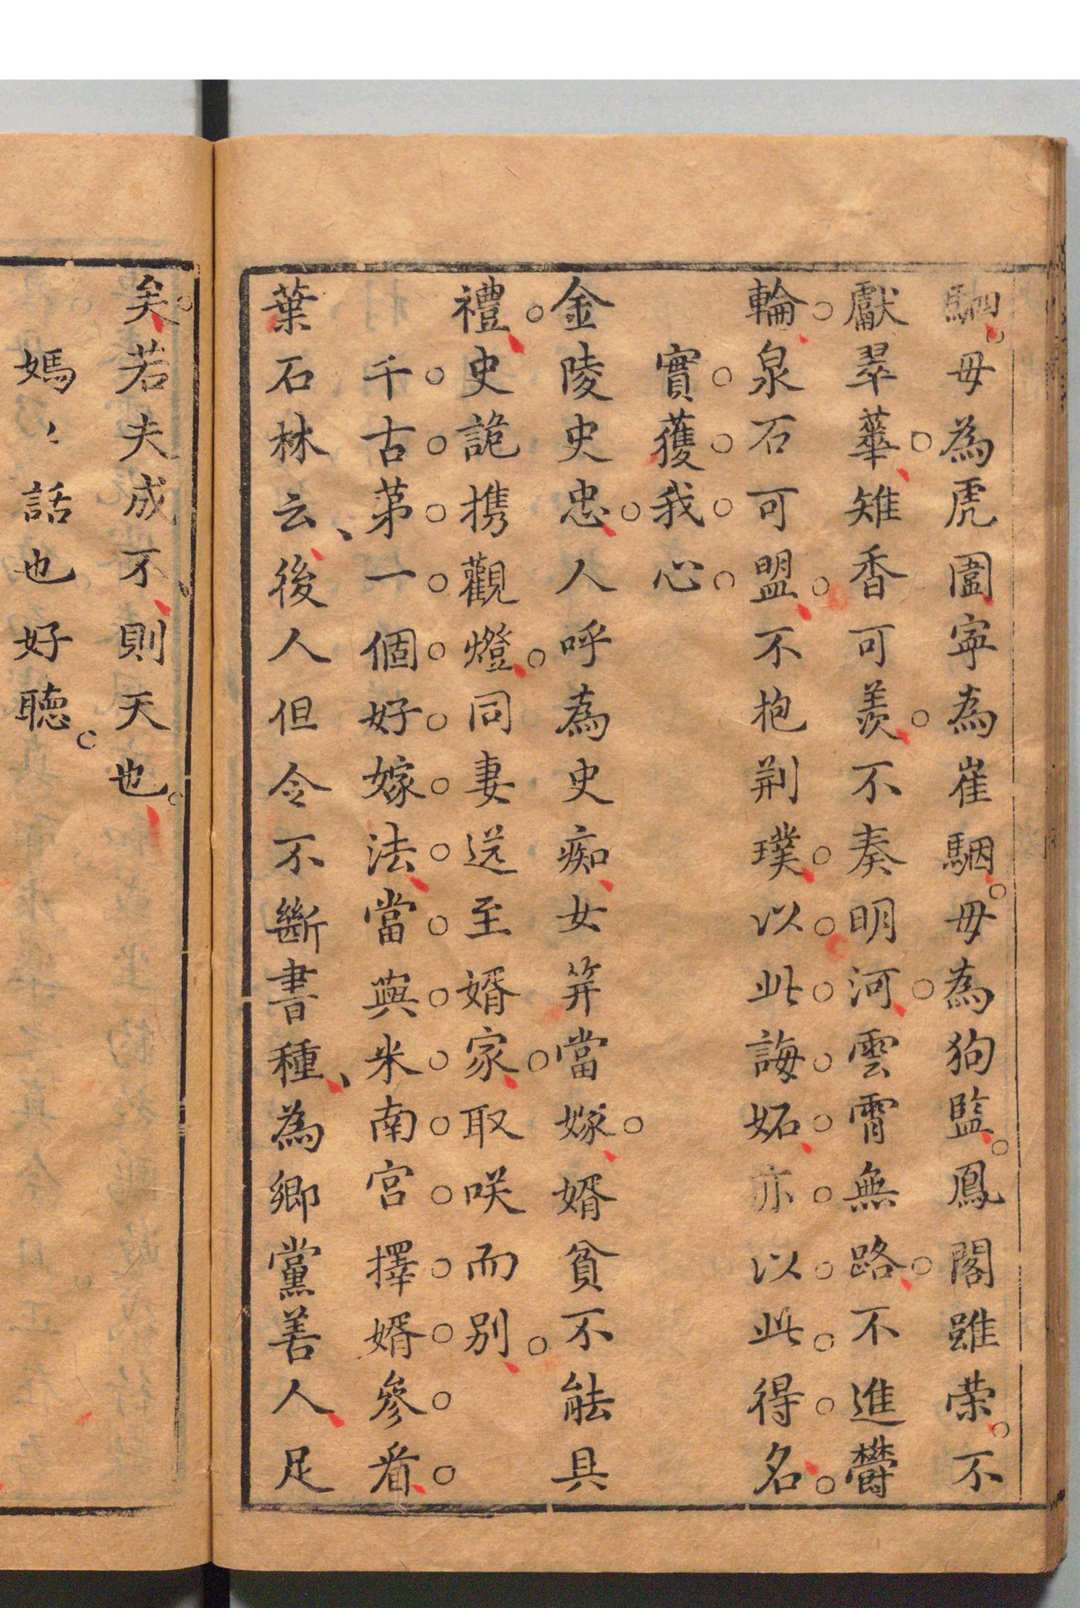 駰。毋為虎圄寧為崔駰。毋為狗監。鳳閣雖荣。不
獻翠華。雉香可羨。不奏明河。雲霄無路。不進欝
輪。泉石可盟。不抱荆璞。以此誨妬。亦以此得名。
實蒦我心
金陵史忠。人呼為史痴、女笄當嫁。婿貧不能具
禮。史詭携觀燈。同妻送至婿家。取咲而別。
千古第一個好嫁法。當與米南宮擇婿參看。
葉石林云、後人但令不斷書種、為鄉黨善人、足
矣。若夫成不、則天也。
嫣〻話也好聽。